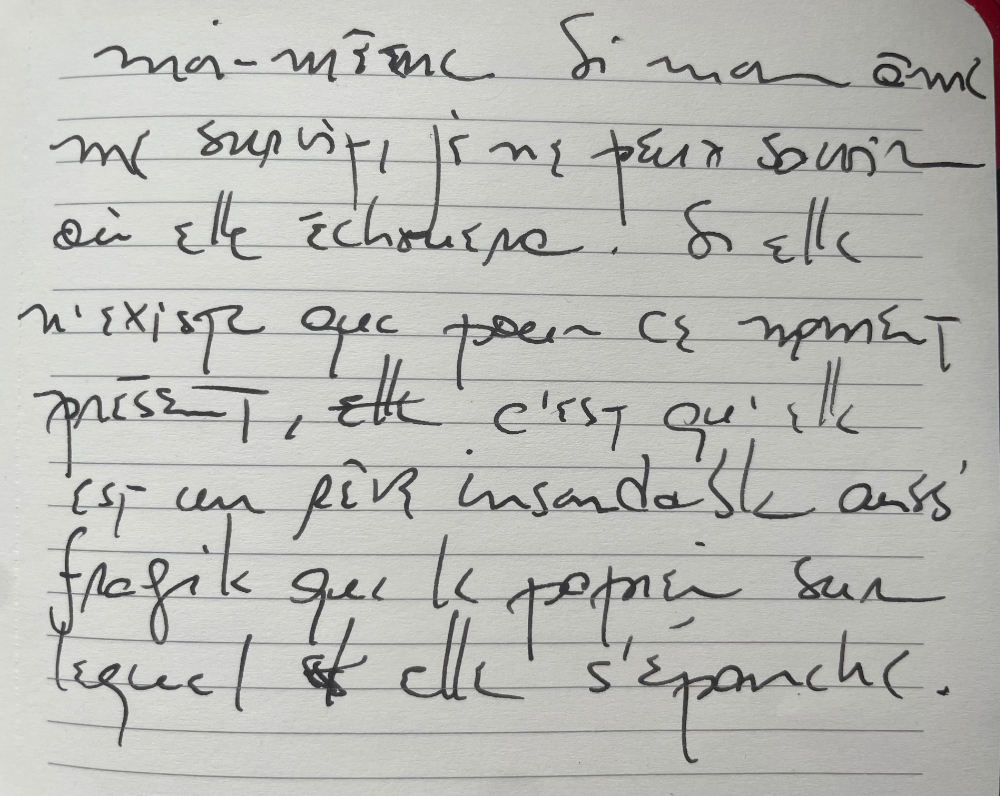 moi-même. Si mon âme
me survit, je ne peux savoir
où elle échouera. Si elle
n'existe que pour ce moment
présent, c'est qu'elle
est un rêve insondable aussi
fragile que le papier sur
lequel elle s'épanche.